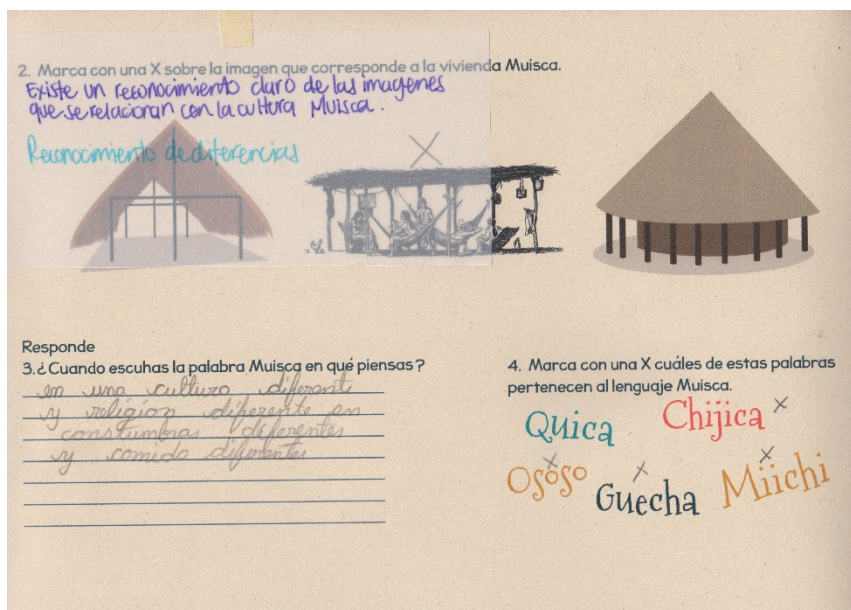 2. Marca con una X sobre la imagen que corresponde a la vivienda Muisca.
Existe un reconocimiento claro de las imagenes
que se relacionan con la cultura Muisca.
Reconocimiento de diferencias
X
Responde
3.¿Cuando escuhas la palabra Muisca en qué piensas?
en una cultura diferente
y religion diferente en
constumbras diferentes
y comida diferentes
4. Marca con una X cuáles de estas palabras
pertenecen al lenguaje Muisca.
Quica
Chijica X
X X X
Ososo Guecha Miichi